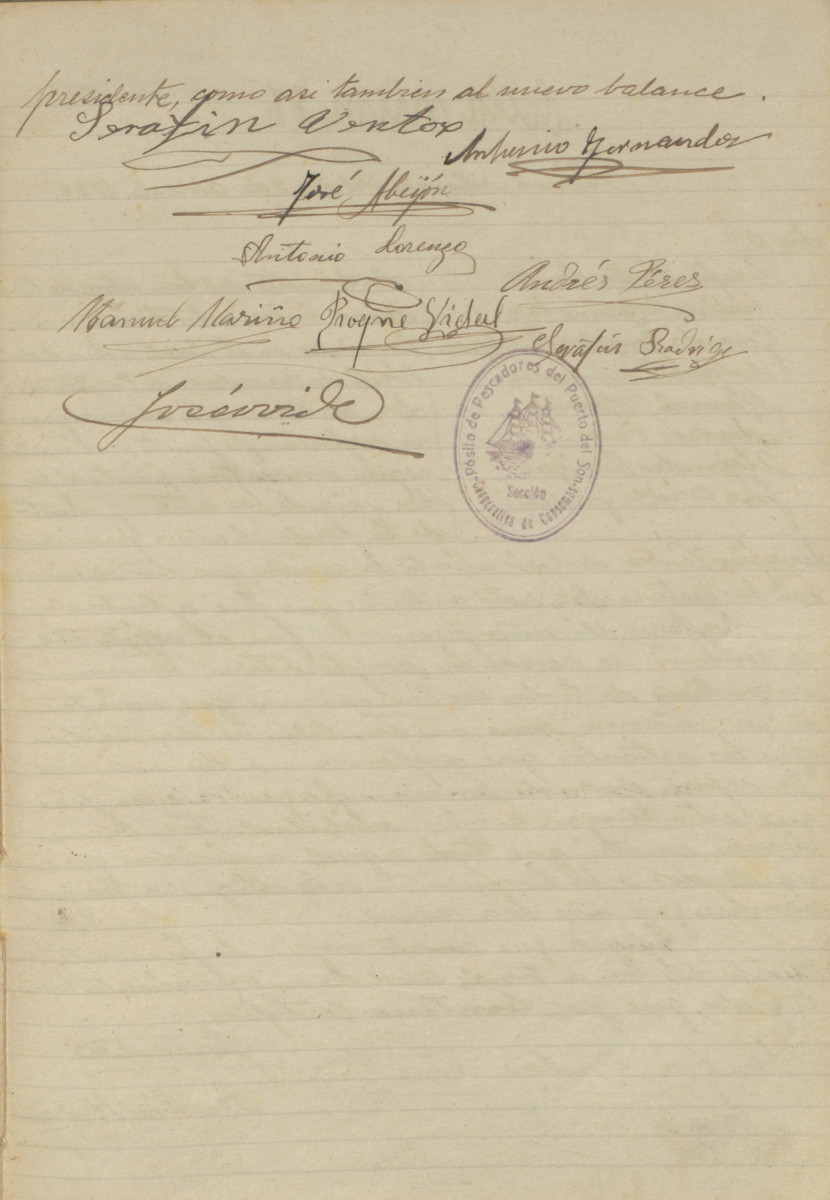 presidente, como asi tambien al nuevo balance.
Serafin Ventox
Antonio Fernandez
José Abeijón
Antonio Lorenzo
Andrés Pérez
Manuel Mariño
Vidal
Serafin
José
Pósito de Pescadores del Puerto del Son
Sección
Cooperativa de Consumos